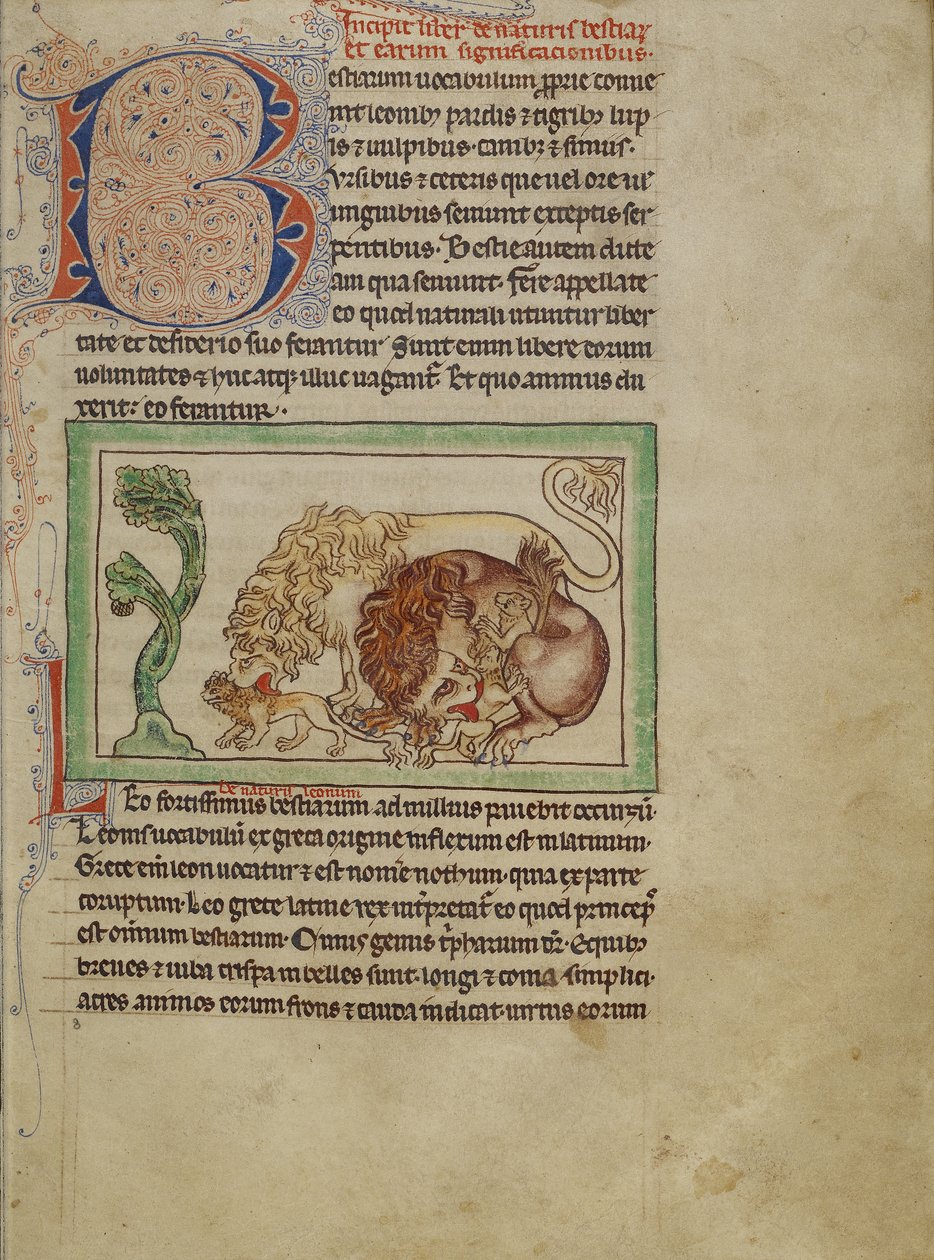 Incipit liber de naturis bestiaꝝ
et earum significacionibus·
Bestiarum uocabulum ꝓprie conue
nit leonibꝫ pardis ⁊ tigribꝫ lup
is ⁊ uulpibus· canibꝫ ⁊ simiis·
Vrsibus ⁊ ceteris que uel ore ul̓
unguibus seuiunt exceptis ser
pentibus· Bestie autem dicte
am qua seuiunt· fere appellate
eo quod naturali utuntur liber
tate et desiderio suo ferantur Sunt enim libere eorum
uoluntates ⁊ huc atqꝫ illuc uagant᷑· Et quo animus du
xerit: eo feruntur·
De naturis leonum
Leo fortissimus bestiarum ad nullius pauebit occursū·
Leonis uocabulū ex greca origine inflexum est in latinum·
Grece em̄ leon uocatur ⁊ est nom̄e nothum· quia ex parte
coruptum· Leo grece latine rex int̓pretat᷑ eo quod princeps
est omnium bestiarum· Cuius genus t̓pharium dr̄· Equibꝫ
breues ⁊ iuba crispa inbelles sunt· longi ⁊ coma simplici·
acres animos eorum frons ⁊ cauda indicat· uirtus eorum
8